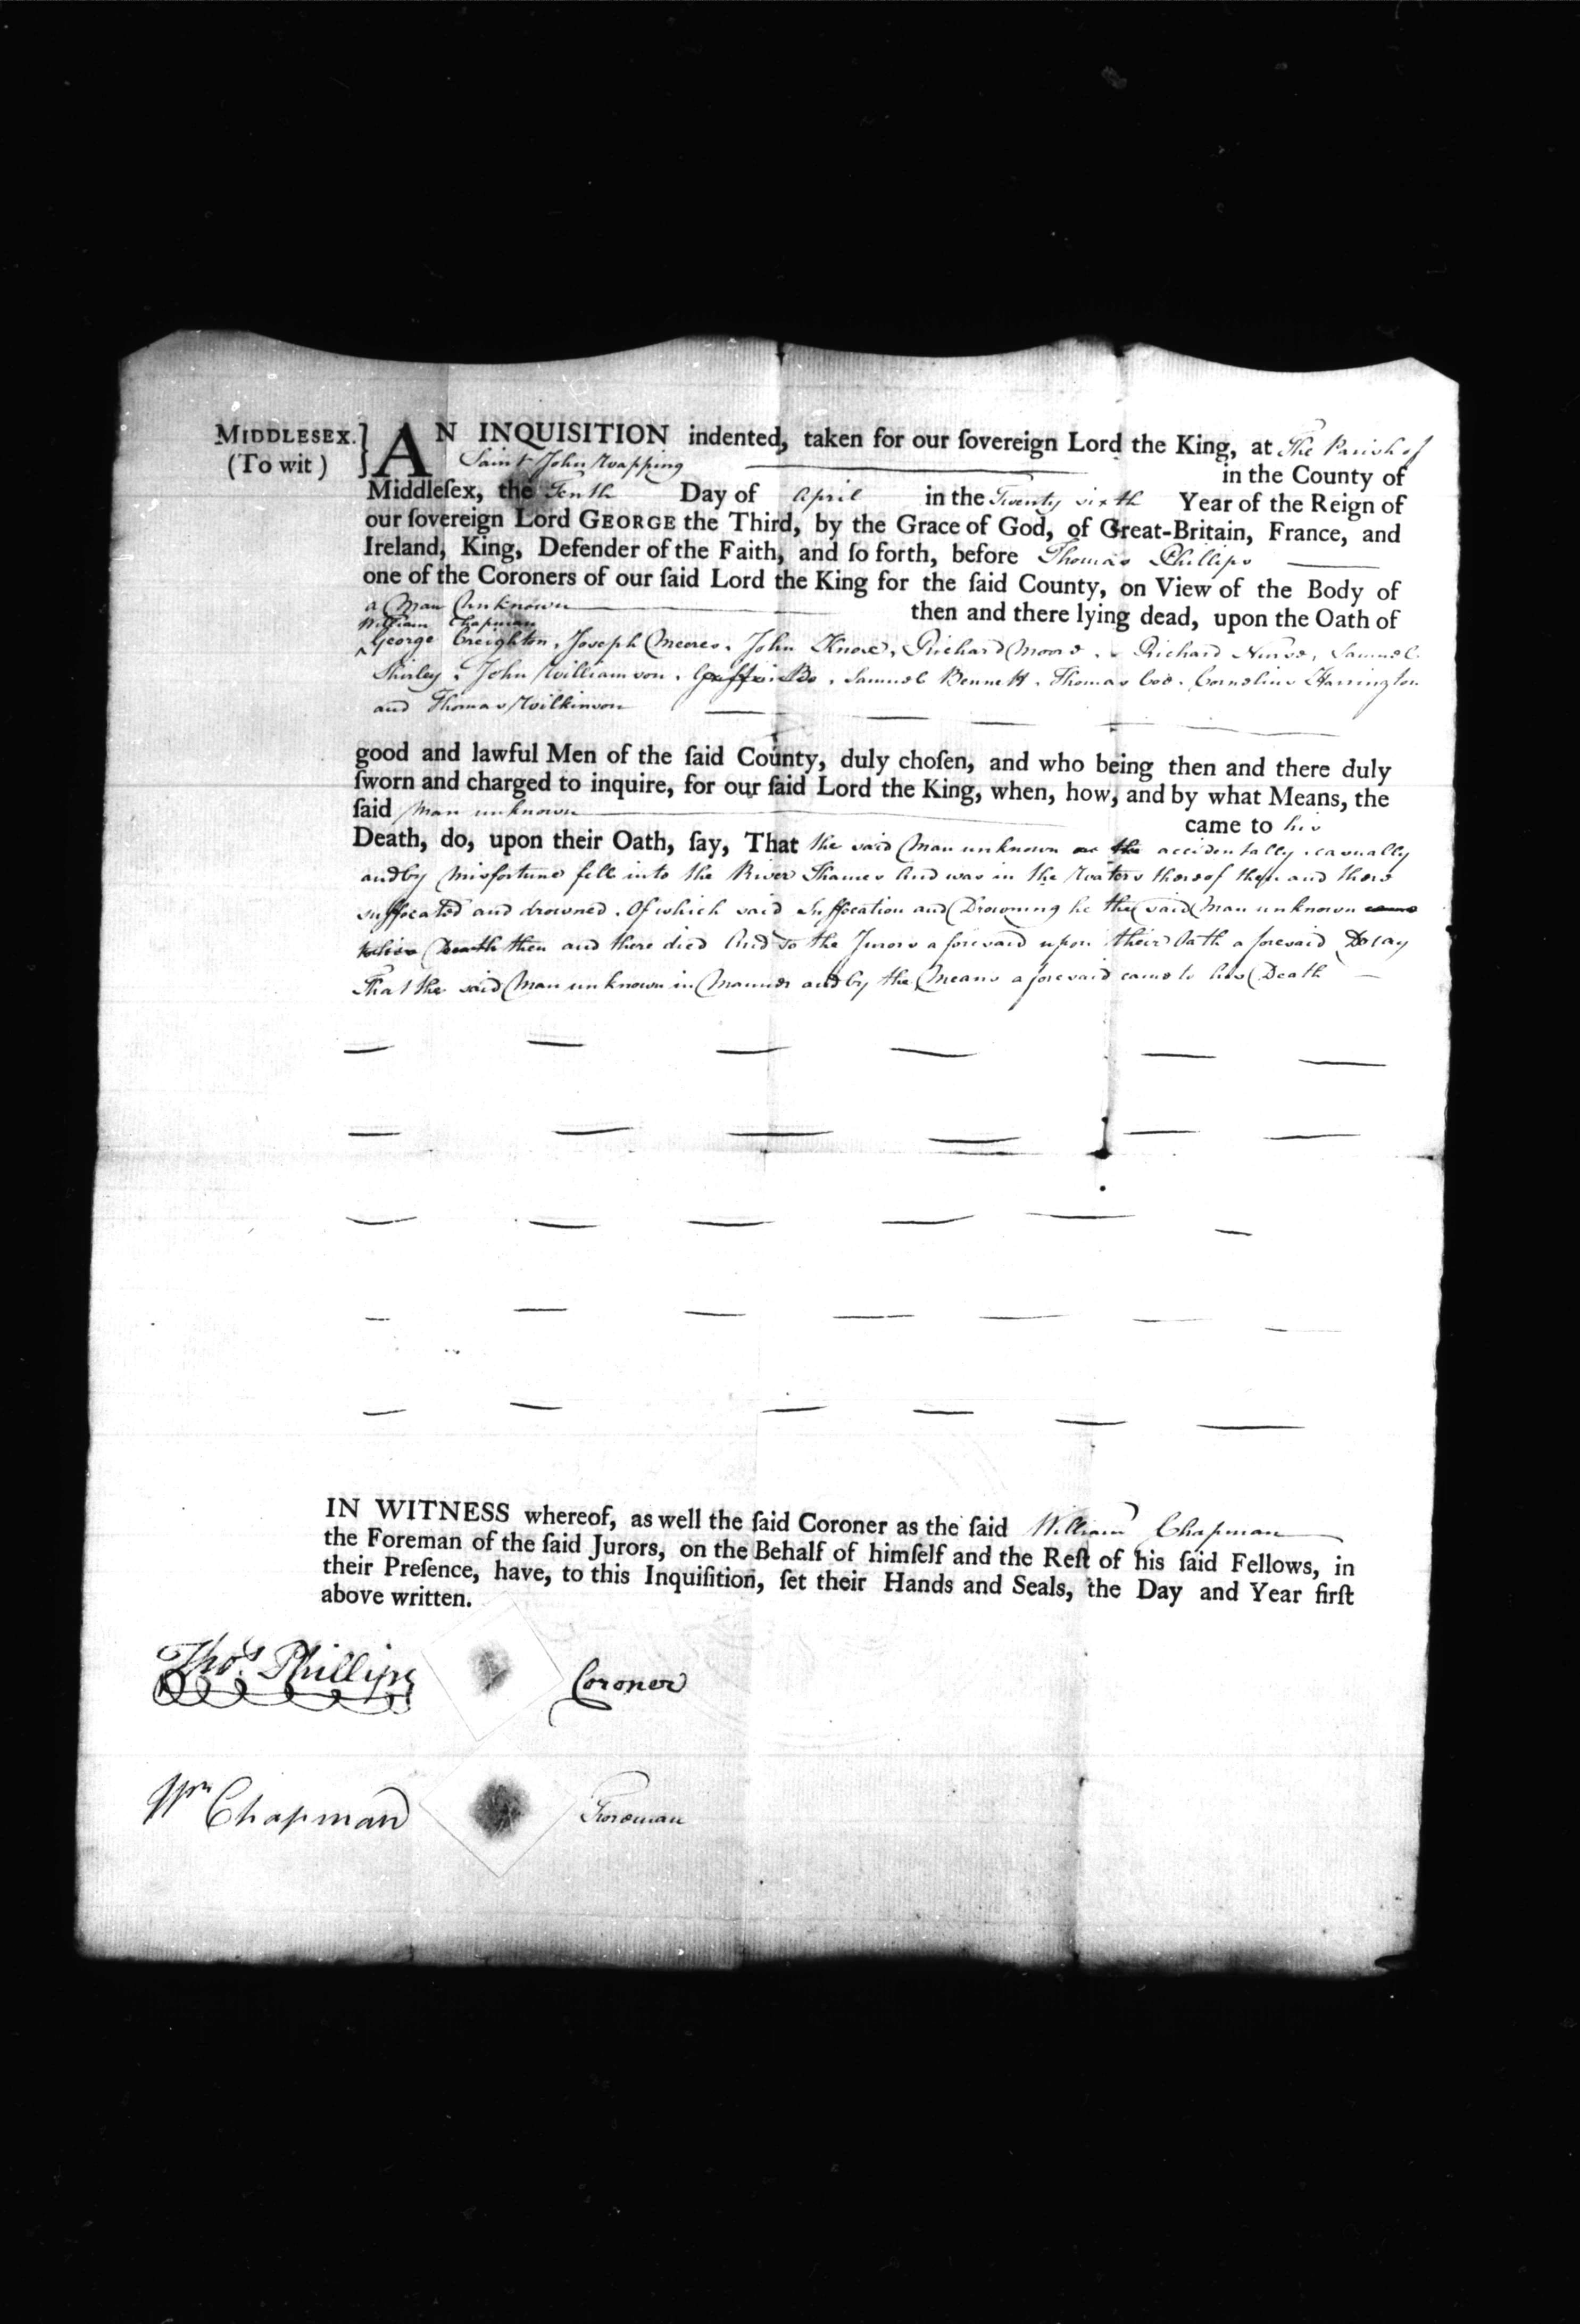 MIDDLESEX. } AN INQUISITION indented, taken for our ſovereign Lord the King, at The Parish of
(To wit) Saint John Wapping in the County of
Middleſex, the Tenth Day of April in the Twenty sixth Year of the Reign of
our ſovereign Lord GEORGE the Third, by the Grace of God, of Great-Britain, France, and
Ireland, King, Defender of the Faith, and ſo forth, before Thomas Phillips
one of the Coroners of our ſaid Lord the King for the ſaid County, on View of the Body of
a Man Unknown then and there lying dead, upon the Oath of
William Chapman
George Creighton, Joseph Meeres, John Knox, Richard Moore, Richard Nurse, Samuel
Shirley, John Williamson, Samuel Bennett, Thomas Coe, Cornelius Harrington
and Thomas Wilkinson
good and lawful Men of the ſaid County, duly choſen, and who being then and there duly
ſworn and charged to inquire, for our ſaid Lord the King, when, how, and by what Means, the
ſaid Man unknown came to his
Death, do, upon their Oath, ſay, That the said Man unknown accidentally, casually
and by Misfortune fell into the River Thames And was in the Waters thereof then and there
suffocated and drowned. Of which said Suffocation and Drowning he the said Man unknown came
to his Death then and there died And so the Jurors aforesaid upon their Oath aforesaid Do say
That the said Man unknown in Manner and by the Means aforesaid came to his Death
IN WITNESS whereof, as well the ſaid Coroner as the ſaid William Chapman
the Foreman of the ſaid Jurors, on the Behalf of himſelf and the Reſt of his ſaid Fellows, in
their Preſence, have, to this Inquiſition, ſet their Hands and Seals, the Day and Year firſt
above written.
Thos. Phillips Coroner
Wm Chapman Foreman